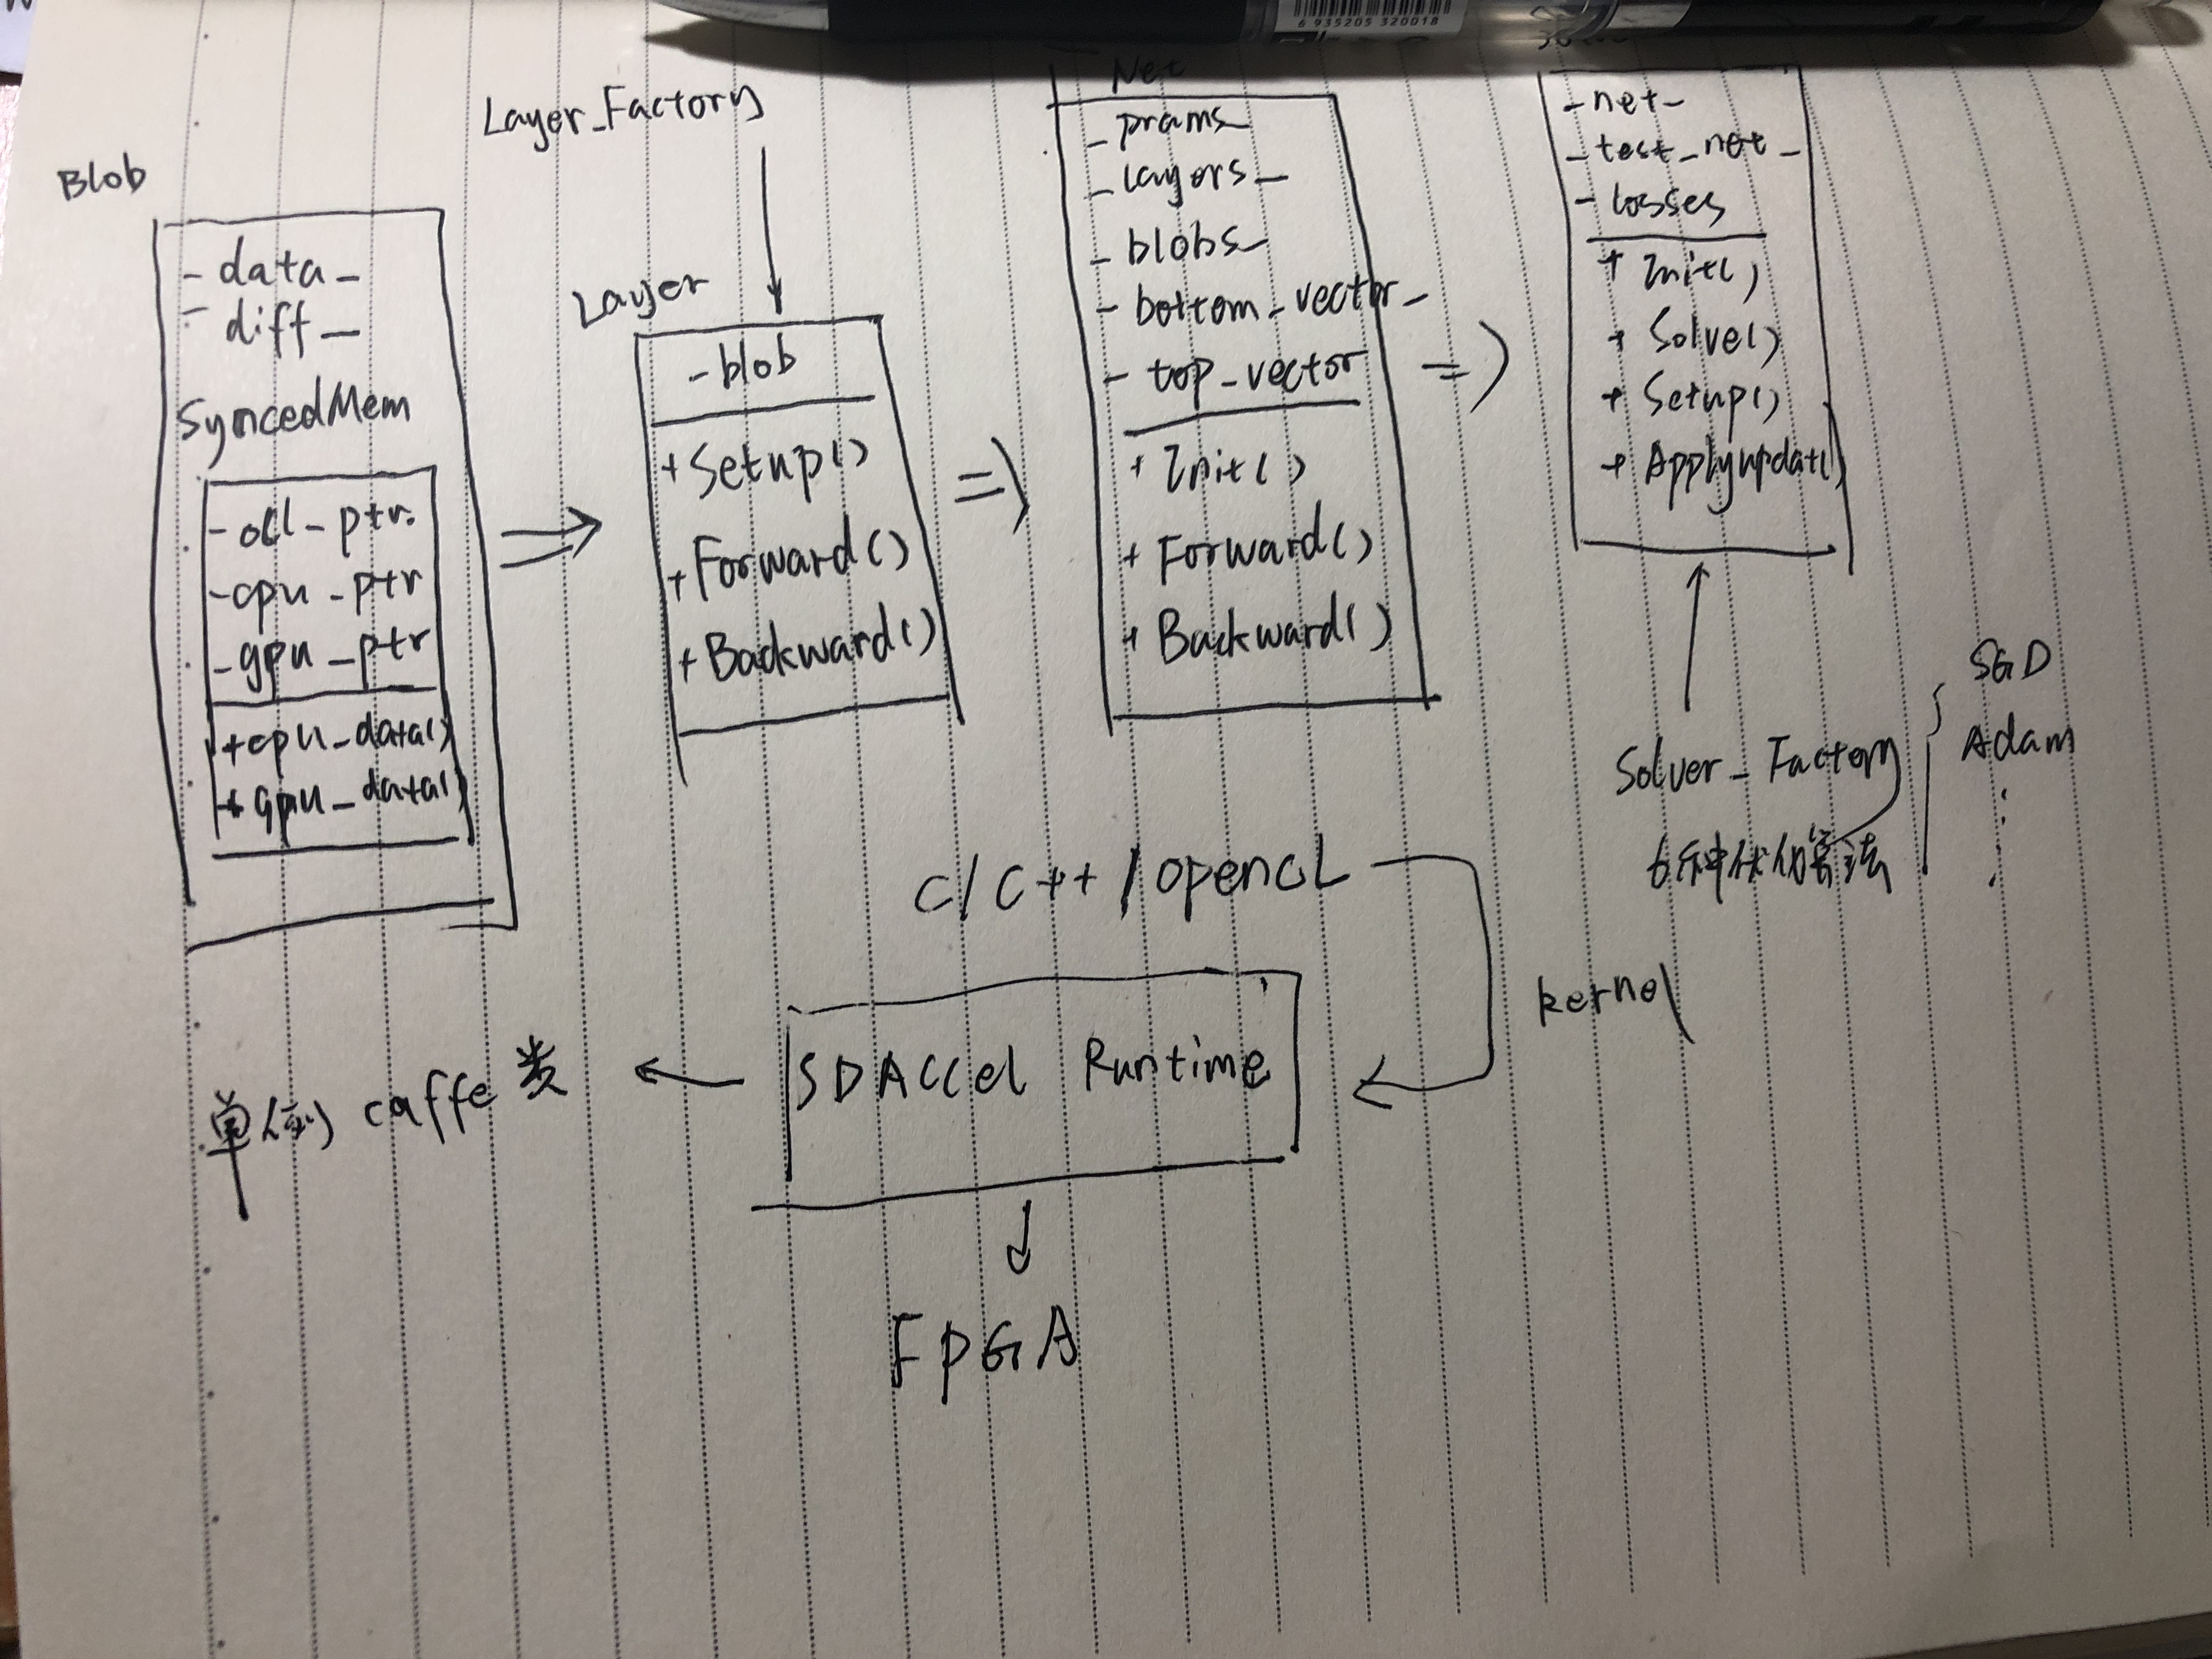 Blob
- data -
- diff -
SyncedMem
- ocl - ptr
- cpu - ptr
- gpu - ptr
+ cpu - data()
+ gpu - data()
Layer_Factory
Layer
- blob
+ Setup()
+ Forward()
+ Backward()
Net
- params -
- layers -
- blobs -
- bottom - vector -
- top - vector
+ Init()
+ Forward()
+ Backward()
- net -
- test - net -
- losses
+ Init()
+ Solve()
+ Setup()
+ ApplyUpdate()
Solver - Factory
SGD
Adam
...
C/C++/OpenCL
kernel
SDAccel Runtime
FPGA
caffe 类
6935205320018